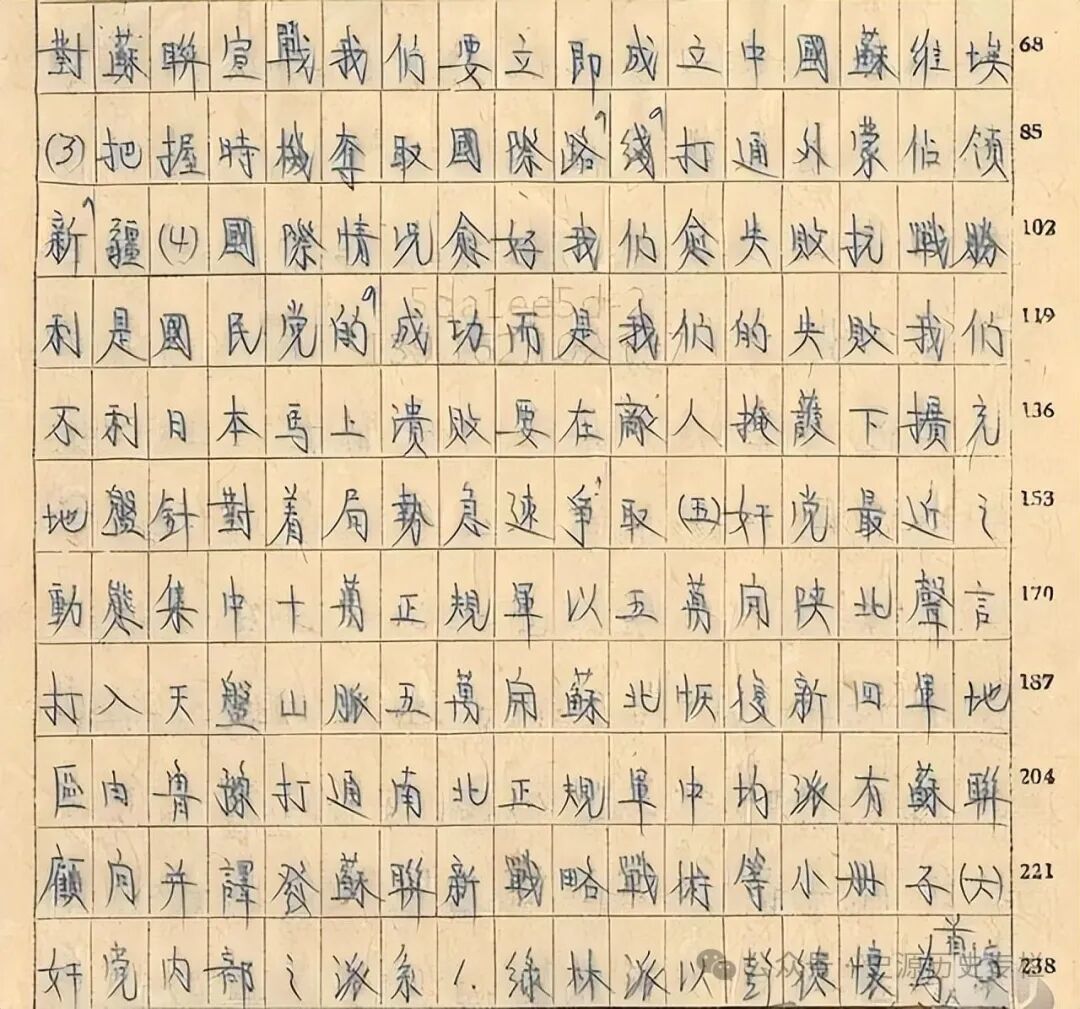 對蘇聯宣戰我们要立即成立中國蘇維埃 68
(3)把握時機奪取國際路綫打通外蒙佔领 85
新疆(4)國際情况愈好我们愈失敗抗戰勝 102
利是國民党的成功而是我们的失敗我们 119
不利日本馬上潰敗要在敵人掩護下擴充 136
地盤針對着局勢急速爭取(五)奸党最近之 153
動態集中十萬正規軍以五萬向陝北聲言 170
打入天盤山脈五萬向蘇北恢復新四軍地 187
區由魯豫打通南北正規軍中均派有蘇聯 204
顧问并譯發蘇聯新戰略戰術等小册子(六) 221
奸党内部之派系1.綠林派以彭德懷為首 238
公众号 史源历史专栏